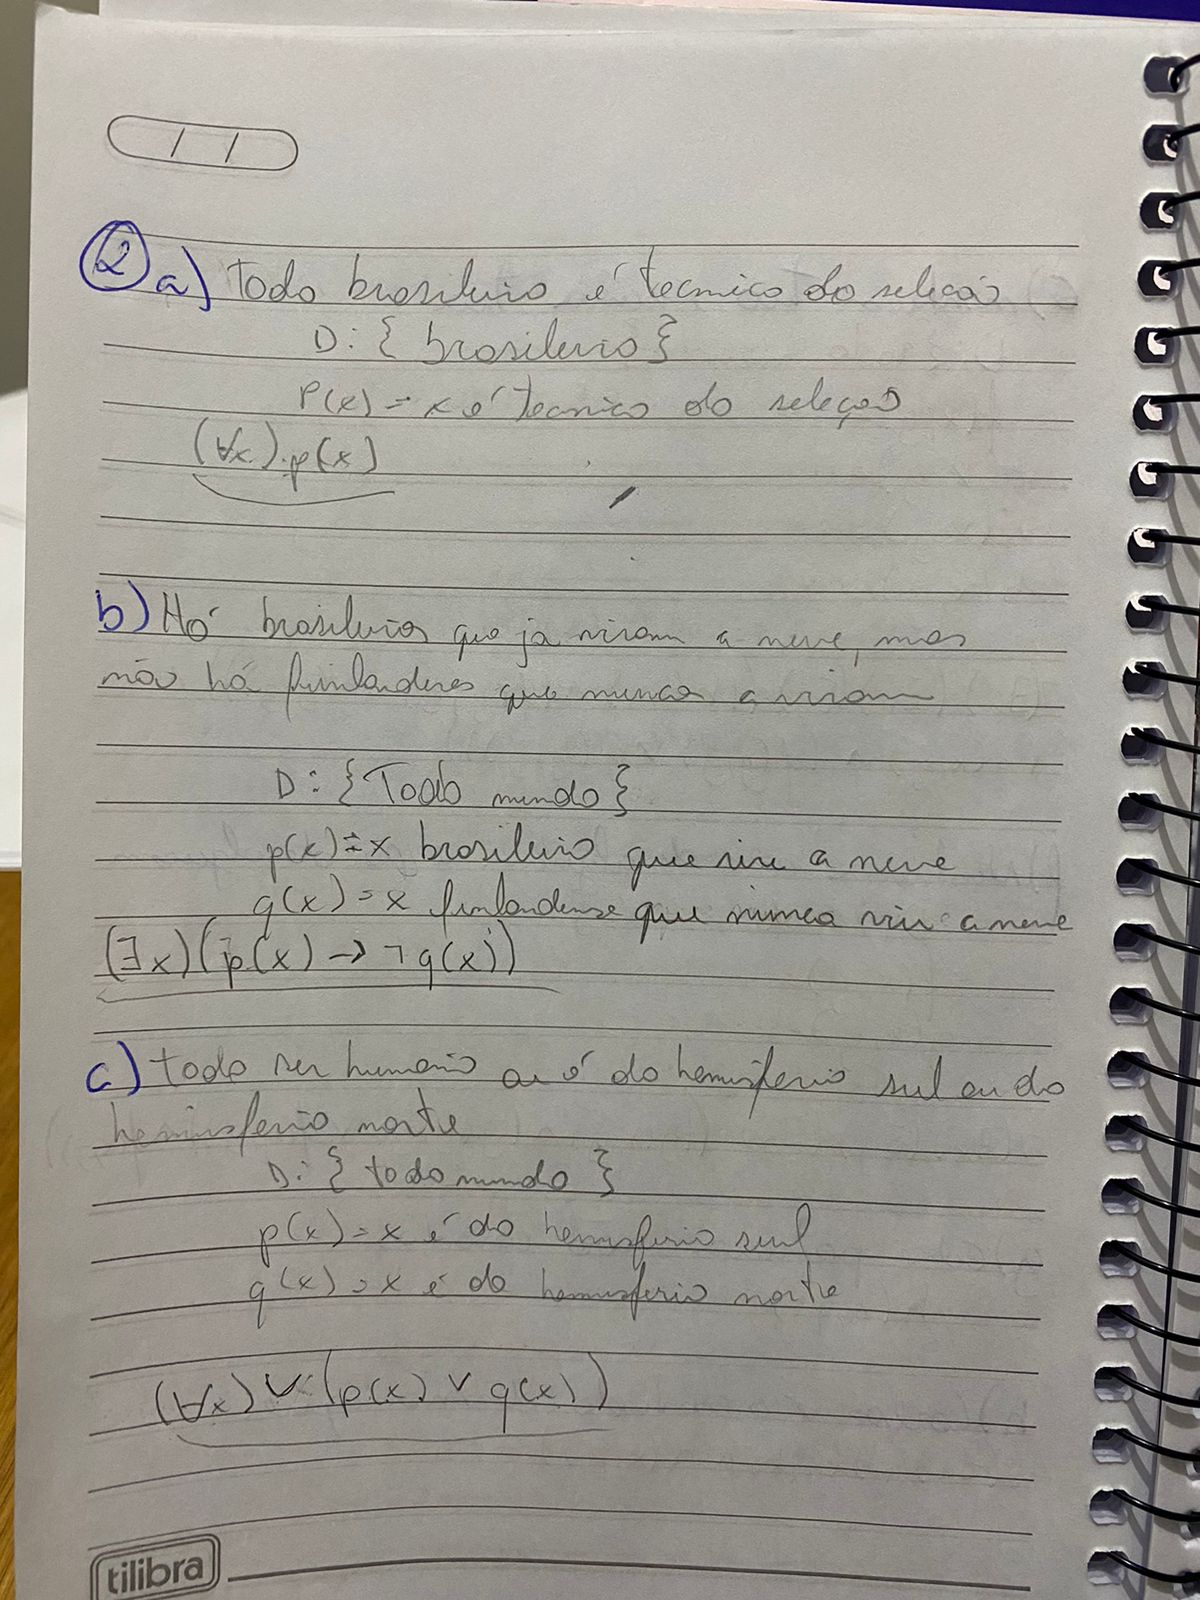 / /
2 a) Todo brasileiro é tecnico da seleção
D: { brasileiro }
P(x) = x é tecnico da seleção
(∀x).p(x)
b) Há brasileiros que ja viram a neve, mas
não há finlandeses que nunca a viram
D: { Todo mundo }
p(x) = x brasileiro que viu a neve
q(x) = x finlandense que nunca viu a neve
(∃x)(p(x) → ¬q(x))
c) todo ser humano ou é do hemisferio sul ou do
hemisferio norte
D: { todo mundo }
p(x) = x é do hemisferio sul
q(x) = x é do hemisferio norte
(∀x) ∨ (p(x) ∨ q(x))
tilibra